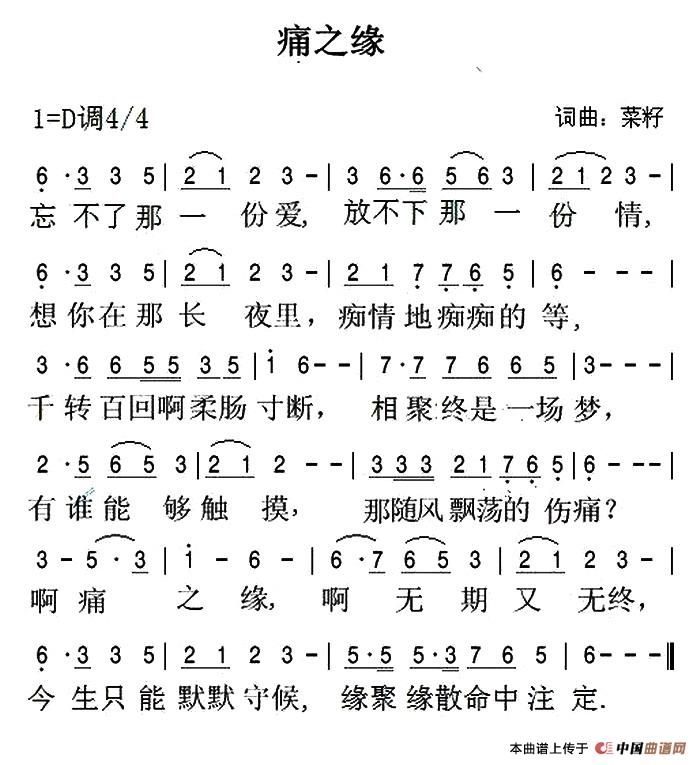 痛之缘
1=D调4/4 词曲：菜籽
6·3 3 5|2 1 2 3-|3 6·6 5 6 3|2 1 2 3-|
忘不了那一份爱,放不下那一份情,
6·3 3 5|2 1 2 3-|2 1 7 7 6 5|6---|
想你在那长夜里，痴情地痴痴的等,
3·6 6 5 5 3 5|1 6--|7·7 7 6 6 5|3---|
千转百回啊柔肠寸断，相聚终是一场梦，
2·5 6 5 3|2 1 2--|3 3 3 2 1 7 6 5|6---|
有谁能够触摸，那随风飘荡的伤痛？
3-5·3|1-6-|6·7 6 5 3|2 1 2 3-|
啊痛之缘，啊无期又无终，
6·3 3 5|2 1 2 3-|5·5 5·3 7 6 5|6---‖
今生只能默默守候,缘聚缘散命中注定.
本曲谱上传于 中国曲谱网